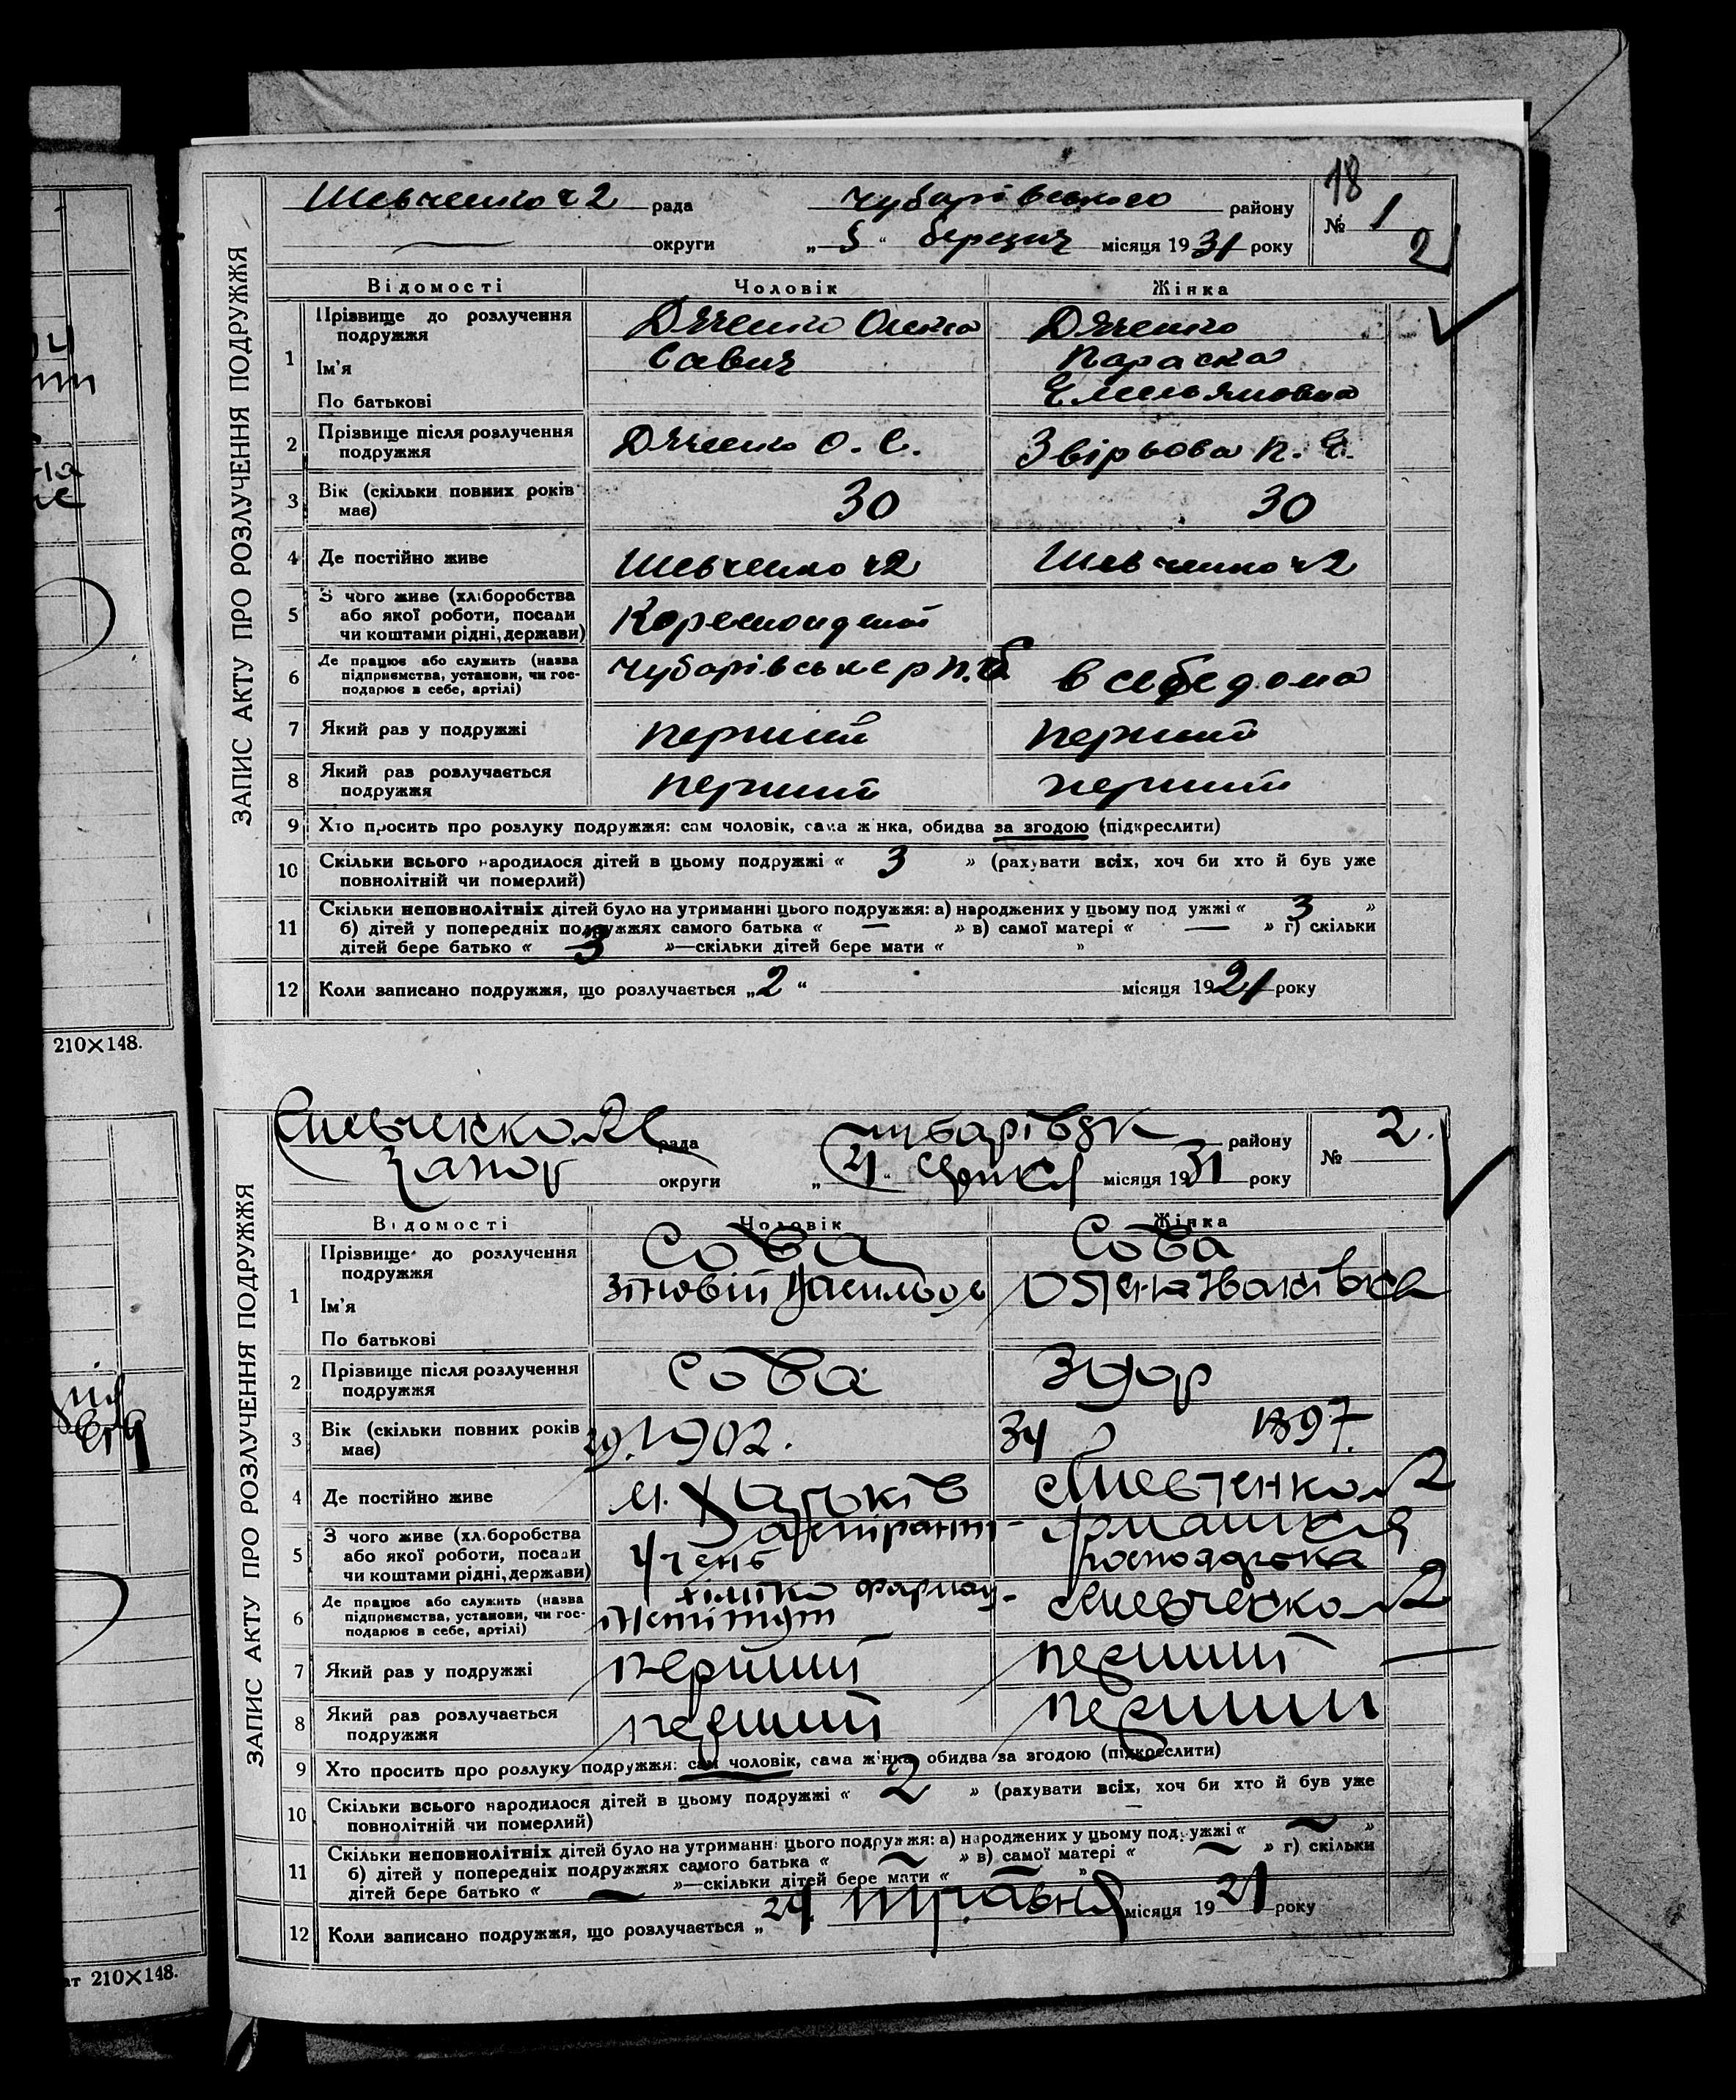 18
Шевченко ч 2 рада Чубарівського району № 1
округи „ 5 “ березня місяця 1931 року 2
ЗАПИС АКТУ ПРО РОЗЛУЧЕННЯ ПОДРУЖЖЯ
Відомості Чоловік Жінка
1 Прізвище до розлучення подружжя Дяченко Олекса Дяченко
Ім'я Савич Параска
По батькові Емельяновна
2 Прізвище після розлучення
подружжя Дяченко О. С. Звірьова П. Е.
3 Вік (скільки повних років
має) 30 30
4 Де постійно живе Шевченко ч2 Шевченко ч2
5 З чого живе (хліборобства
або якої роботи, посади
чи коштами рідні, держави) Кореспондент
6 Де працює або служить (назва
підприємства, установи, чи гос-
подарює в себе, артілі) Чубарівське в себе дома
7 Який раз у подружжі перший перший
8 Який раз розлучається
подружжя перший перший
9 Хто просить про розлуку подружжя: сам чоловік, сама жінка, обидва за згодою (підкреслити)
10 Скільки всього народилося дітей в цьому подружжі « 3 » (рахувати всіх, хоч би хто й був уже
повнолітній чи померлий)
11 Скільки неповнолітніх дітей було на утриманні цього подружжя: а) народжених у цьому подружжі « 3 »
б) дітей у попередніх подружжях самого батька « — » в) самої матері « — » г) скільки
дітей бере батько « 3 »—скільки дітей бере мати « »
12 Коли записано подружжя, що розлучається „2“ місяця 1921 року
210×148.
Шевченко 2 рада Чубарівск району № 2.
Запор округи „ 21 “ місяця 1931 року
ЗАПИС АКТУ ПРО РОЗЛУЧЕННЯ ПОДРУЖЖЯ
Відомості Чоловік Жінка
1 Прізвище до розлучення
подружжя Сова Сова
Ім'я Зіновій Васильов Івановна
По батькові
2 Прізвище після розлучення
подружжя Сова Здор
3 Вік (скільки повних років
має) 29. 1902. 34 1897.
4 Де постійно живе м. Харьків Шевченко 2
5 З чого живе (хліборобства
або якої роботи, посади
чи коштами рідні, держави) учень аспірант домашня господарка
6 Де працює або служить (назва
підприємства, установи, чи гос-
подарює в себе, артілі) хіміко фармац. інстітут Шевченко 2
7 Який раз у подружжі перший перший
8 Який раз розлучається
подружжя перший перший
9 Хто просить про розлуку подружжя: сам чоловік, сама жінка, обидва за згодою (підкреслити)
10 Скільки всього народилося дітей в цьому подружжі « 2 » (рахувати всіх, хоч би хто й був уже
повнолітній чи померлий)
11 Скільки неповнолітніх дітей було на утриманні цього подружжя: а) народжених у цьому подружжі « — »
б) дітей у попередніх подружжях самого батька « — » в) самої матері « — » г) скільки
дітей бере батько « — »—скільки дітей бере мати « — »
12 Коли записано подружжя, що розлучається „24 травня місяця 1921 року
ат 210×148.